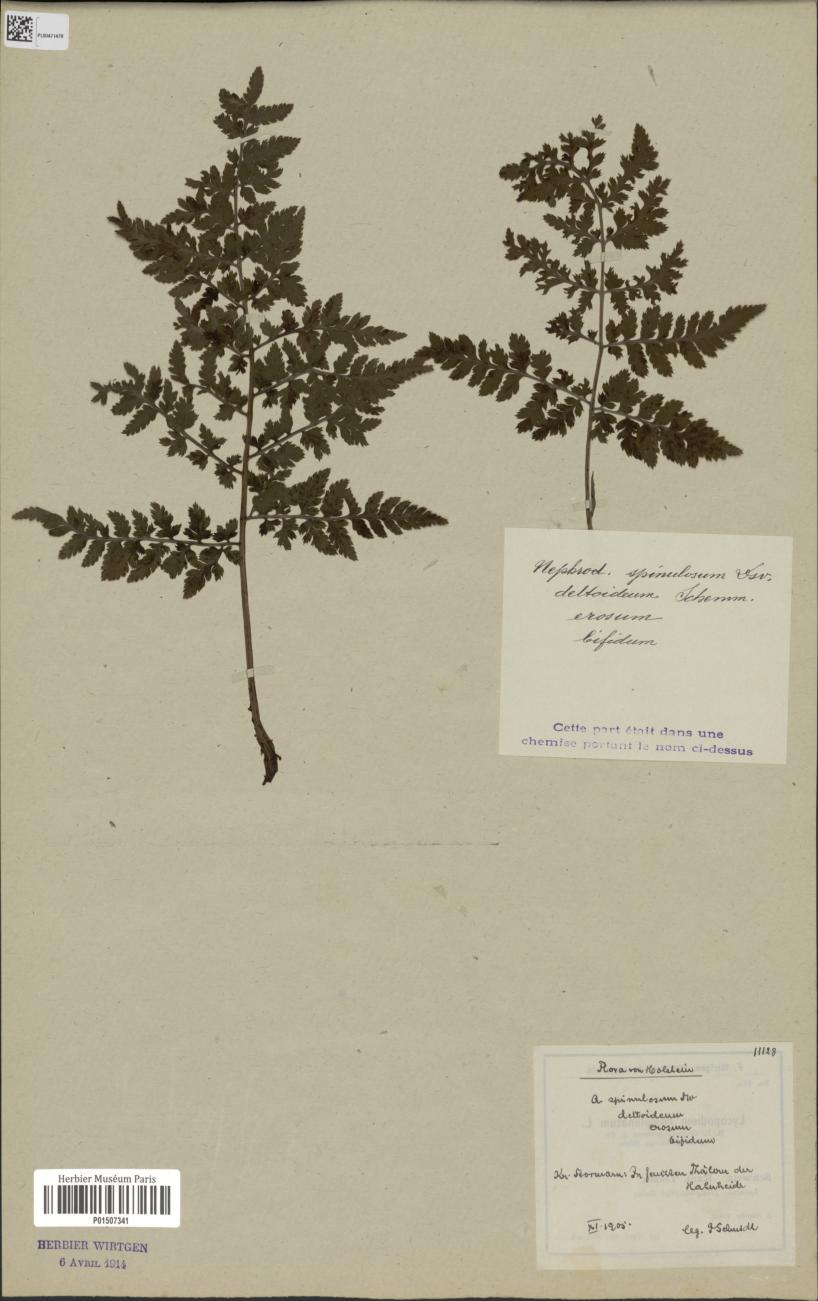 PU00471478
Nephrod. spinulosum Sw.
deltoideum Schemm.
erosum
bifidum
Cette part était dans une
chemise portant le nom ci-dessus
11128
Flora von Holstein
A. spinulosum Sw
deltoideum
erosum
bifidum
Kr. Stormarn: In feuchten Thälern der
Hahnheide
XI. 1905.
leg. J Schmidt
Herbier Muséum Paris
P01507341
HERBIER WIRTGEN
6 AVRIL 1914